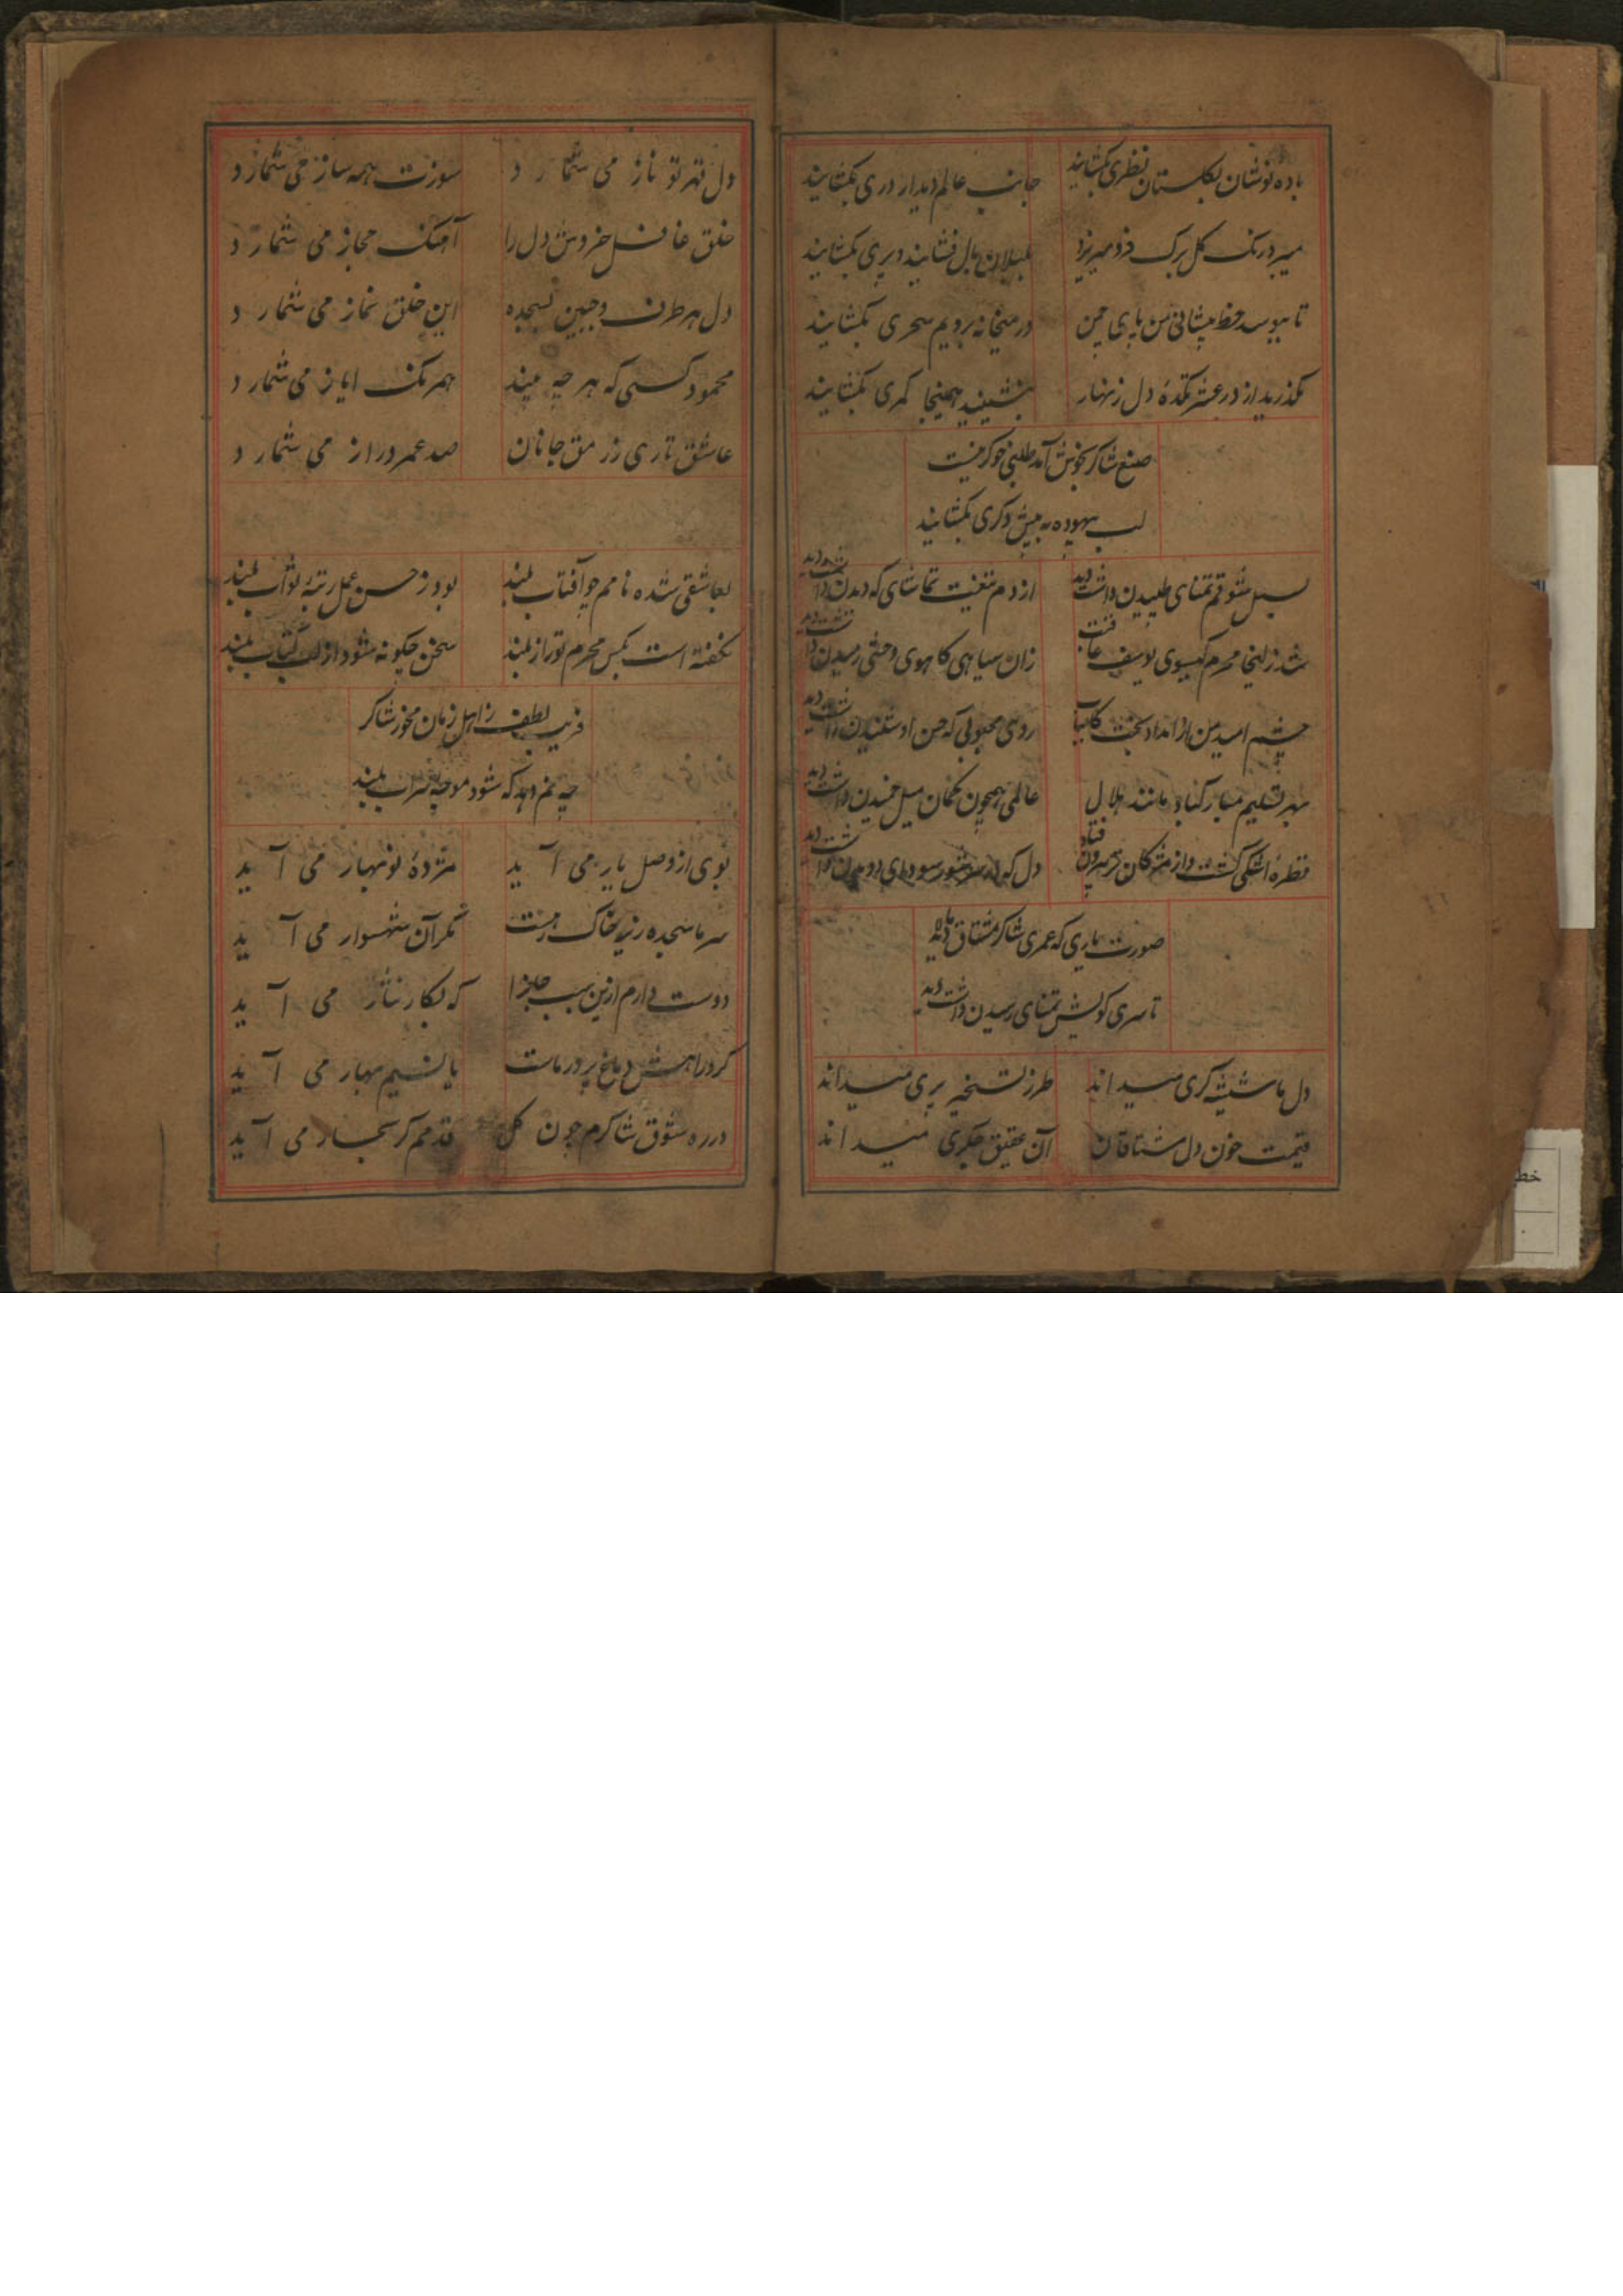 باده نوشان بگلستان نظری بکشایند
جانب عالم دیدار دری بکشایند
میپرد رنگ گل برگ فرو میریزد
بلبلان بال فشانید و پری بکشایند
تا ببوسد خط پیشانی من پای چمن
در میخانه برویم سحری بکشایند
مگذرید از در عشرتکدهٔ دل زنهار
بنشینید همینجا کمری بکشایند
صنع شاکر بخوش آمد طلبی خوگر نیست
لب بیهوده به پیش دگری بکشایند
بسمل شوقم تمنای طپیدن داشت دید
از دم تیغت تماشای که دیدن داشت دید
شد زلیخا محرم گیسوی یوسف عاقبت
زان سیاهی کاهوی وحشی رمیدن داشت دید
چشم امید من از امداد بخت کامیاب
روی محبوبی که حسن او شنیدن داشت دید
بهر تسلیم مبارکباد مانند هلال
عالمی همچون کمان میل خمیدن داشت دید
قطرهٔ اشکی گشت و از مژگان تر بیرون فتاد
دل که در سر شور سودای دویدن داشت دید
صورت یاری که عمری شاکر مشتاق ما
تا سری کویش تمنای رسیدن داشت دید
دل ما شیشه گری میداند
طرز تسخیر پری میداند
قیمت خون دل مشتاقان
آن عقیق جگری میداند
دل قهر تو ناز می شمارد
سوزت همه ساز می شمارد
خلق غافل خروش دل را
آهنگ مجاز می شمارد
دل هر طرف و جبین بسجده
این خلق نماز می شمارد
محمود کسی که هر چه بیند
همرنگ ایاز می شمارد
عاشق تاری ز زلف جانان
صد عمر دراز می شمارد
بعاشقی شده نامم چو آفتاب بلند
بود ز حسن عمل رتبهٔ ثواب بلند
نگفته است بکس محرم تو راز بلند
سخن چگونه شود از لب کتاب بلند
فریب لطف ز اهل زمان مخور شاکر
چه نم دهد که شود موجهٔ سراب بلند
بوی از وصل یار می آید
مژدهٔ نوبهار می آید
سر ما سجده ریز خاک رهست
مگر آن شهسوار می آید
دوست دارم ازین سبب جان را
که بکار نثار می آید
گرد راهش دماغ پرور ماست
یا نسیم بهار می آید
در ره شوق شاکرم چون گل
قدمم گر بخار می آید